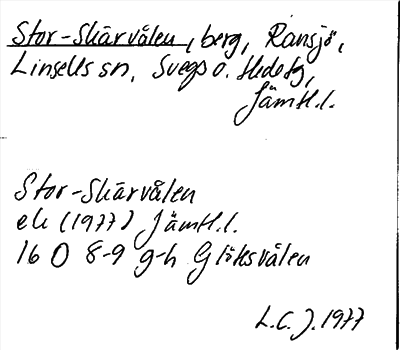 Stor-Skärvålen, berg, Ransjö,
Linsells sn, Svegs o. Hede tg,
Jämtl.l.
Stor-Skärvålen
ek (1977) Jämtl.l.
16 D 8-9 g-h Glöksvålen
L.C.J. 1977